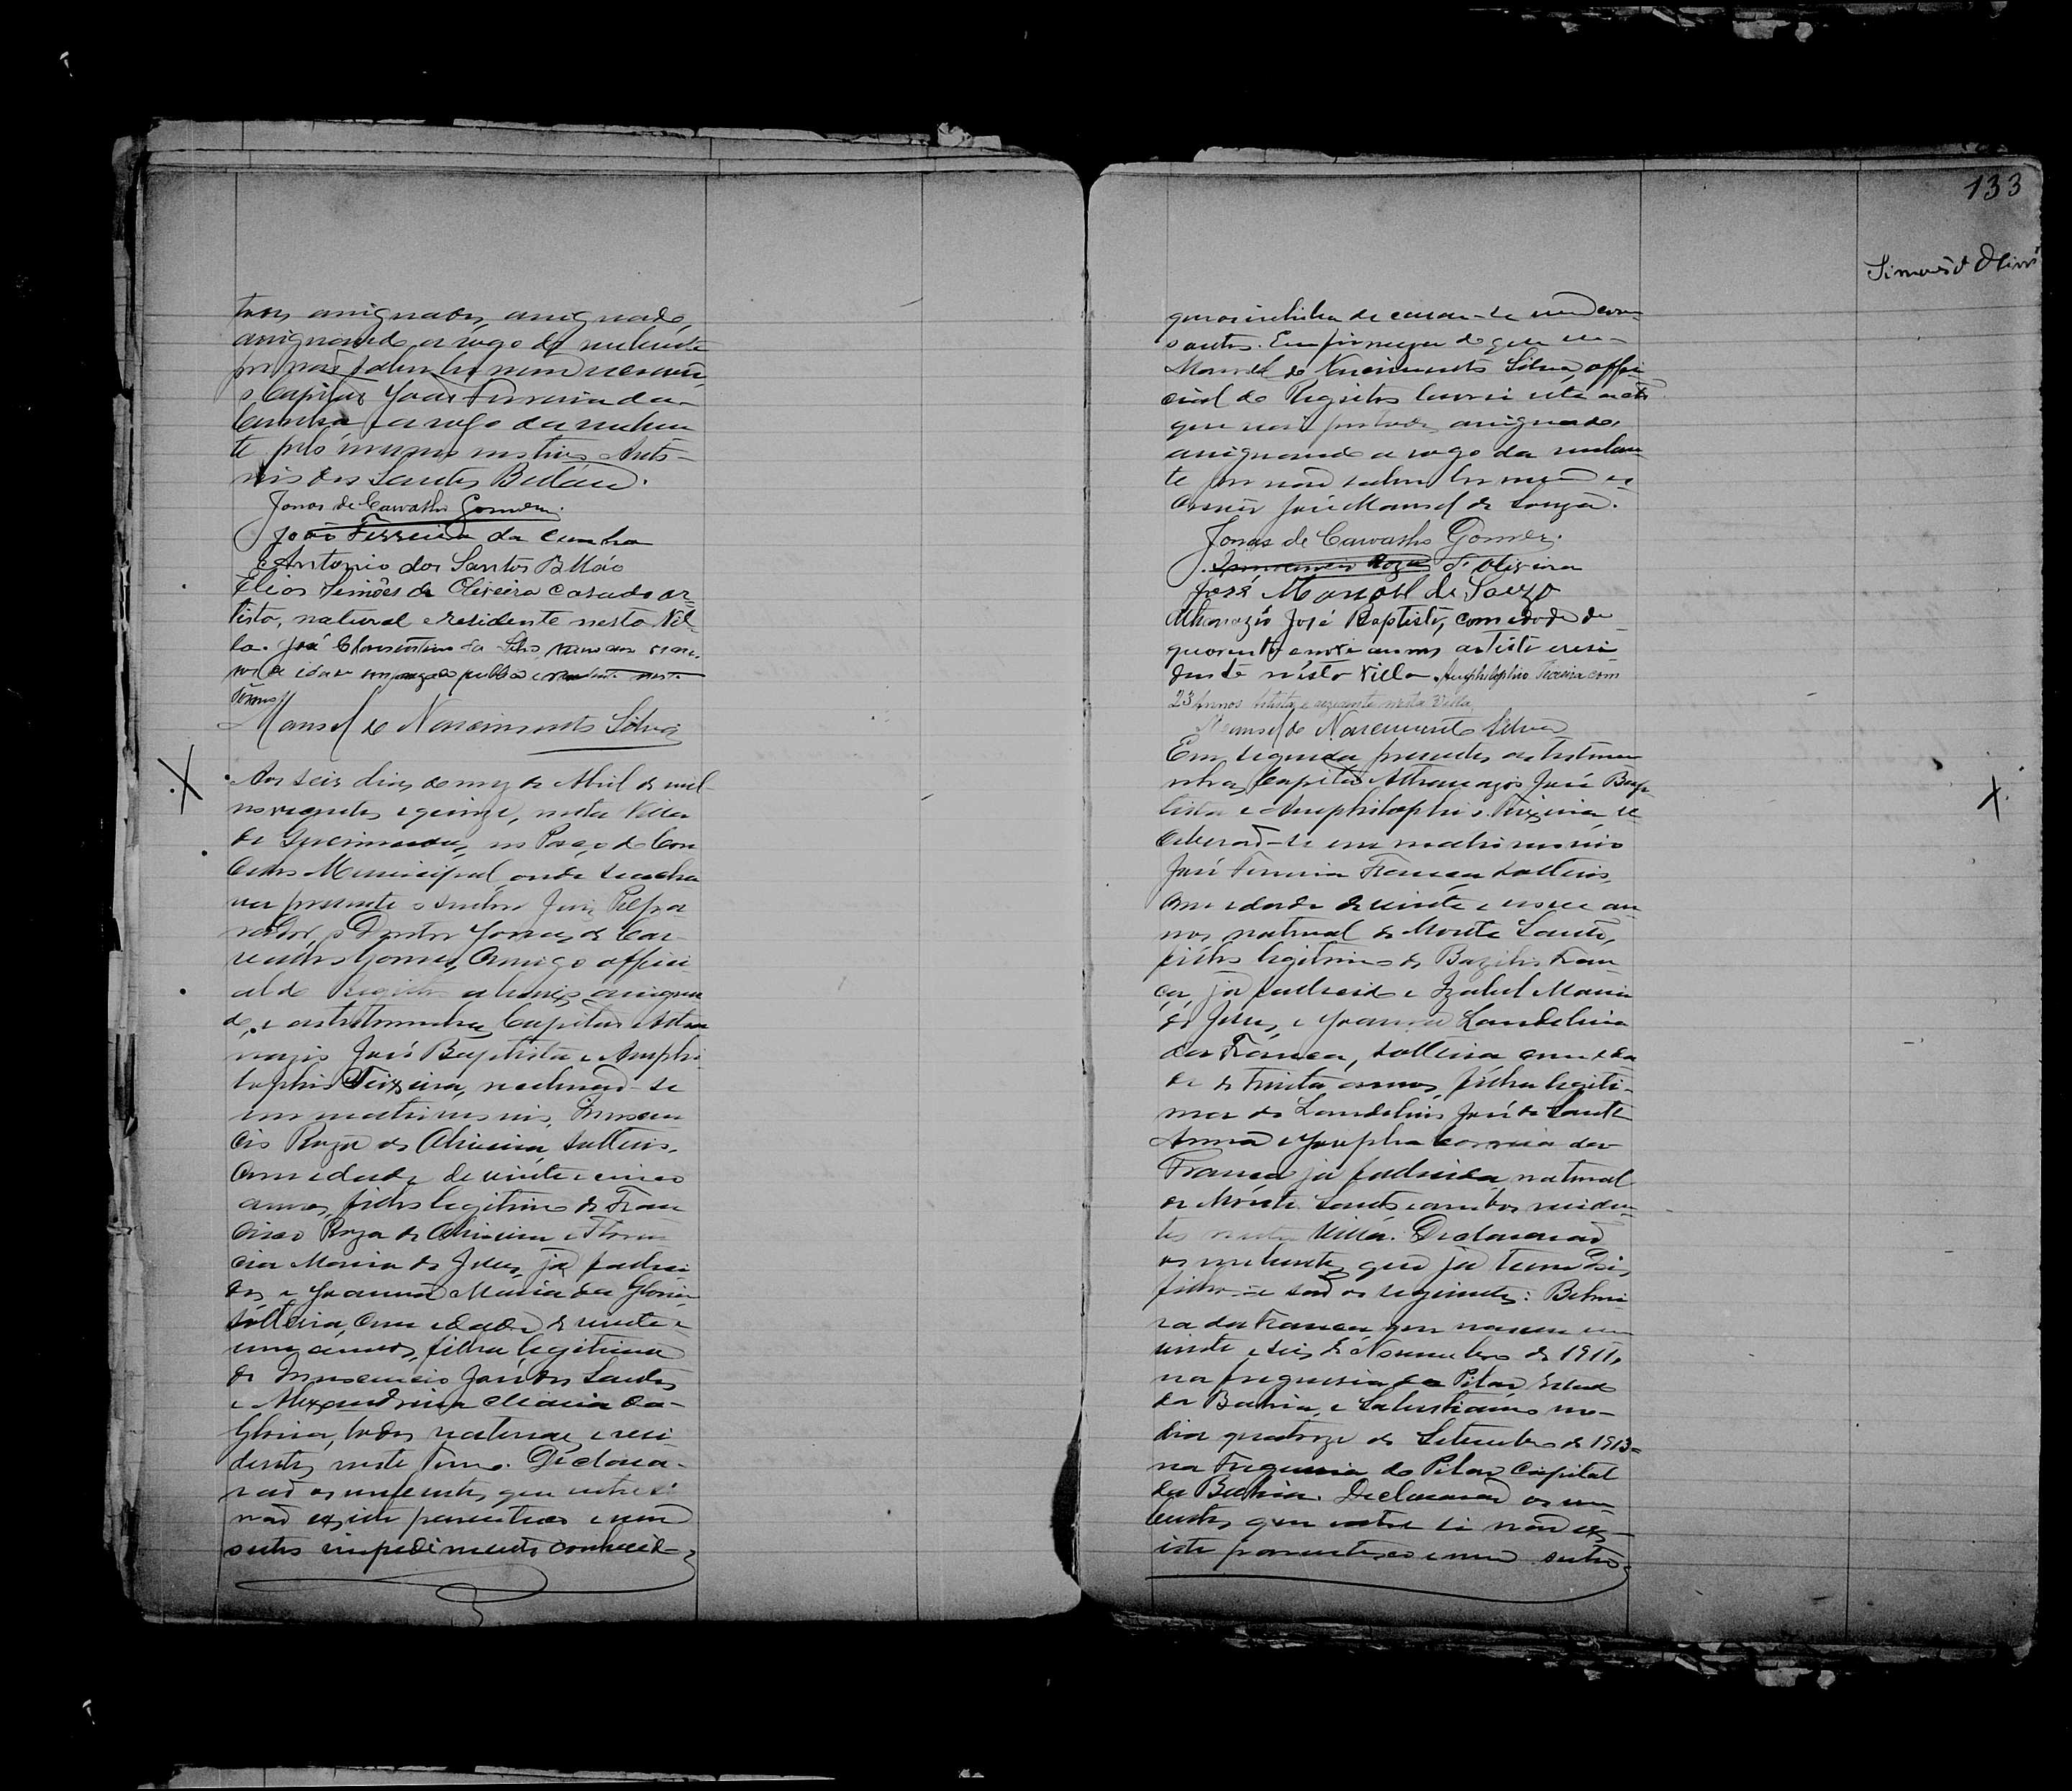 tros assignados, assignado,
assignando a rogo do nubente
por não saber ler nem escrever,
o Capitão João Ferreira da
Cunha e a rogo da nuben
te pelo mesmo motivo Anto-
nio dos Santos Belláu.
Jonas de Carvalho Gomes.
João Ferreira da Cunha
Antonio dos Santos Belláo
Elias Simões de Oliveira casado ar-
tista, natural e residente nesta Vil-
la. José da Silva
nos de idade empregado publico e residente neste
Termo
Manoel do Nascimento Silva
Aos seis dias do mez de Abril de mil
novecentos e quinze, nesta Villa
de Queimadas, no Paço do Con
celho Municipal, onde se acha
va presente o senhor Juiz Pre
o Doutor Jonas de Car-
valho Gomes, commigo offici
al do Registro abaixo assigna
do, e as testemunhas Capitão Atha
nazio José Baptista e Amphi
lophio Teixeira, receberão-se
em matrimonio, Innocen
cio Roza de Oliveira, solteiro,
com edade de vinte e cinco
annos, filho legitimo de Fran
cisco Roza de Oliveira e
Maria de Jesus, já falleci
dos e Joanna Maria da Gloria
solteira, com edade de vinte e
um annos, filha legitima
de Innocencio José dos Santos
e Alexandrina Maria da
Gloria, todos naturaes e resi
dentes neste Termo. Declara-
rão os nubentes, que entre si
não existe parentesco e nem
outro impedimento conhecido
133
Simões d Olivrª
que os inhiba de casar-se um com
o outro. Em firmeza do que eu
Manoel do Nascimento Silva, offi
cial do Registro lavrei este acto
que vai por todos assignado,
assignando a rogo da nuben
te por não saber ler nem es
crever José Manoel de Souza.
Jonas de Carvalho Gomes.
Innocencio Roza d'Oliveira
José Manoel de Souza
Athanazio José Baptista, com edade de
quarenta e nove annos artista e resi
dente nesta Villa. Amphilophio Teixeira com
23 Annos Artista e rezidente nesta Villa
Manoel do Nascimento Silva
Em seguida presentes as testemu
nhas, Capitão Athanazio José Bap
tista e Amphilophio Teixeira, re
ceberão-se em matrimonio
José Ferreira França solteiro,
com edade de vinte e nove an
nos, natural de Monte Santo,
filho legitimo de Bazilio Fran
ça, já fallecido e Izabel Maria
de Jesus, e Joanna Landelina
da França, solteira com eda
de de trinta annos, filha legiti-
ma de Landelino José de Sant
Anna e Josepha Correia da
França já fallecida, natural
de Monte Santo e ambos residen
tes nesta Villa. Declararão
os nubentes, que já tem dois
filhos e são os seguintes: Belmi
ra da França que nasceu em
vinte e seis de Novembro de 1911,
na freguesia do Pilar, Estado
da Bahia, e Salustiano no
dia quatorze de Setembro de 1913
na Freguesia do Pilar Capital
da Bahia. Declararão os nu
bentes, que entre si não ex-
iste parentesco e nem outro